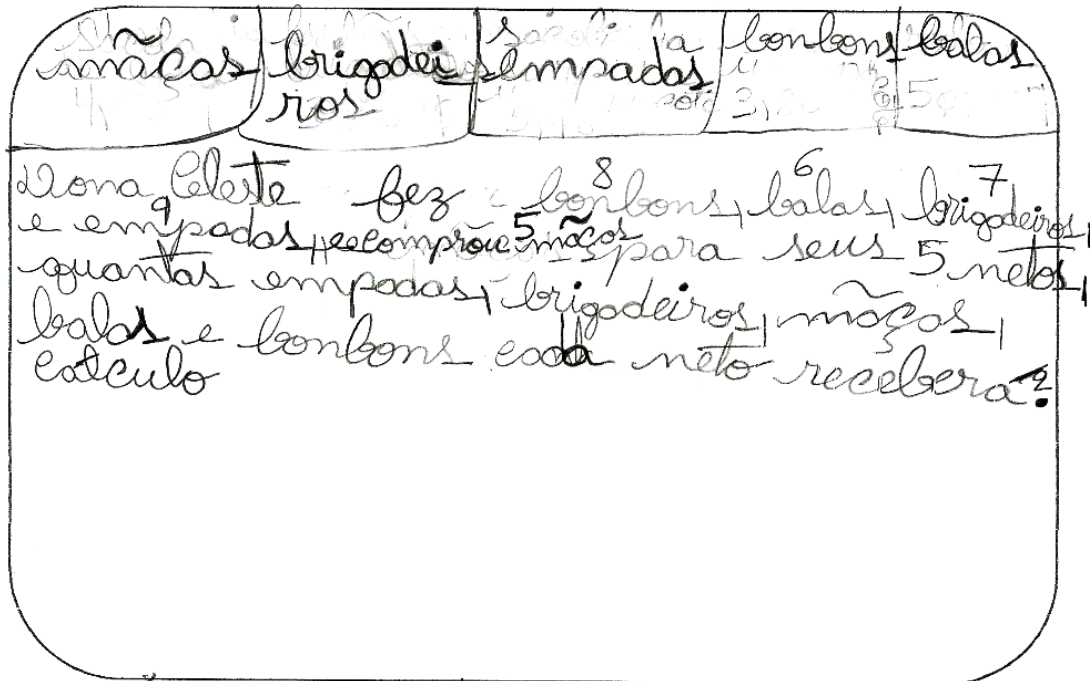 mãças brigadei empadas bonbons balas
ros
Dona Celeste fez 8 bonbons, 6 balas, 7 brigadeiros,
e 9 empadas, e comprou 5 mãças para seus 5 netos,
quantas empadas, brigadeiros, mãças,
balas e bonbons cada neto recebera?
calculo